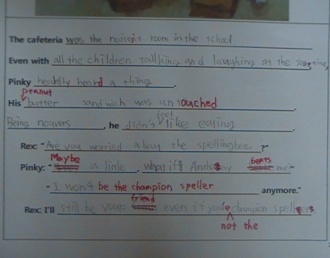 The cafeteria was the noisiest room in the school
Even with all the children talking and laughing at the same time,
Pinky heardly heard a thing.
peanut
His butter sandwich was un touched
Being nervers, he didn't feel like eating
Rex: "Are you worried about the spellingbee?
Pinky: "Maybe a little. what if beats me"
"I won't be the champion speller anymore."
friend
Rex: I'll still be your even if you're champion speller
not the